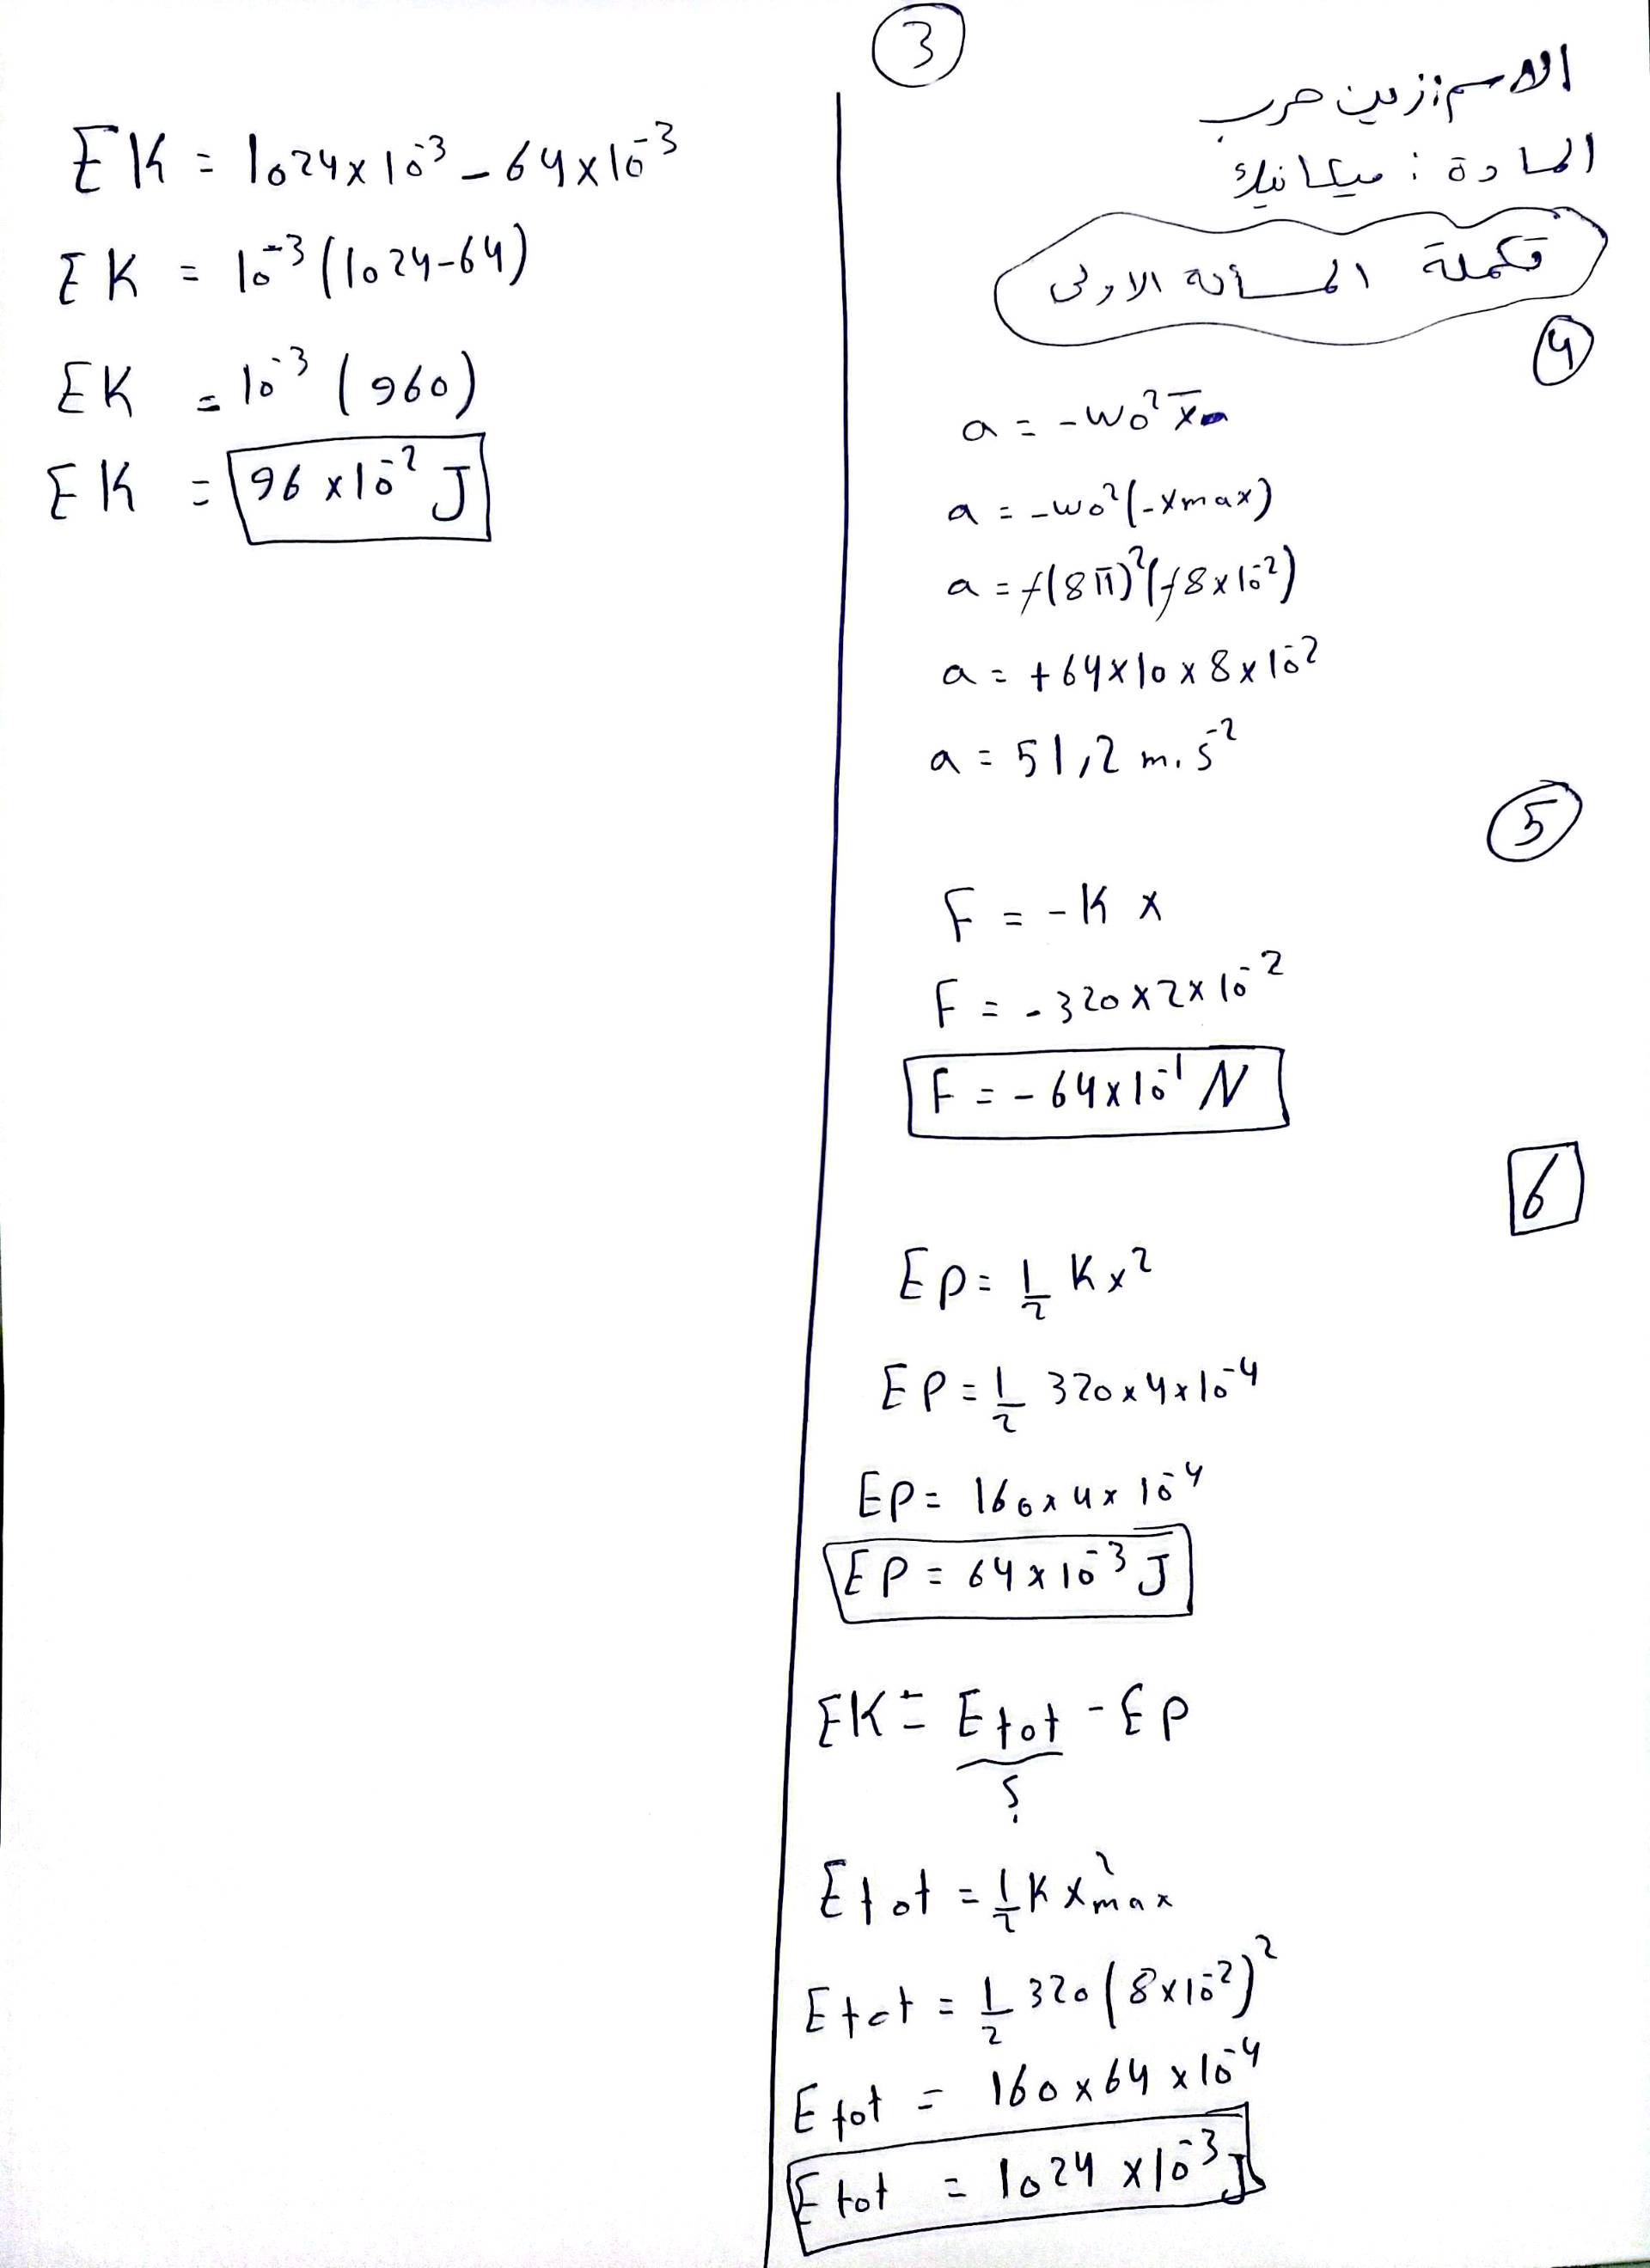 3
الاسم: زين حرب
المادة: ميكانيك
تكملة المسألة الاولى
4
a = -ω₀² x̄
a = -ω₀²(-Xmax)
a = -(8π)²(-8×10⁻²)
a = +64×10×8×10⁻²
a = 51,2 m.s⁻²
5
F = -K x
F = -320×2×10⁻²
F = -64×10⁻¹ N
6
Ep = 1/2 Kx²
EP = 1/2 320×4×10⁻⁴
EP = 160×4×10⁻⁴
EP = 64×10⁻³ J
EK = Etot - EP
؟
Etot = 1/2 K X²max
Etot = 1/2 320(8×10⁻²)²
Etot = 160×64×10⁻⁴
Etot = 1024×10⁻³ J
EK = 1024×10⁻³ - 64×10⁻³
EK = 10⁻³(1024-64)
EK = 10⁻³(960)
EK = 96×10⁻² J